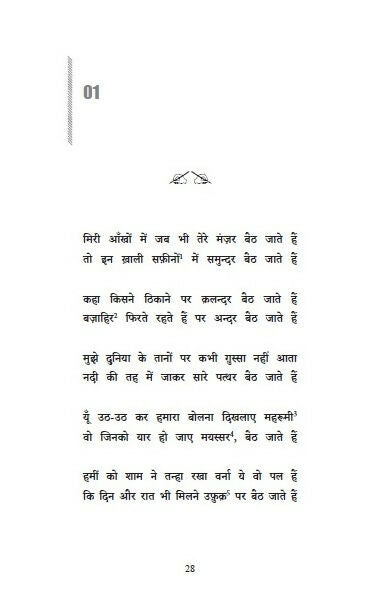 01
मिरी आँखों में जब भी तेरे मंज़र बैठ जाते हैं
तो इन ख़ाली सफ़ीनों¹ में समुन्दर बैठ जाते हैं
कहा किसने ठिकाने पर क़लन्दर बैठ जाते हैं
बज़ाहिर² फिरते रहते हैं पर अन्दर बैठ जाते हैं
मुझे दुनिया के तानों पर कभी ग़ुस्सा नहीं आता
नदी की तह में जाकर सारे पत्थर बैठ जाते हैं
यूँ उठ-उठ कर हमारा बोलना दिखलाए महरूमी³
वो जिनको यार हो जाए मयस्सर⁴, बैठ जाते हैं
हमीं को शाम ने तन्हा रखा वर्ना ये वो पल हैं
कि दिन और रात भी मिलने उफ़ुक़⁵ पर बैठ जाते हैं
28